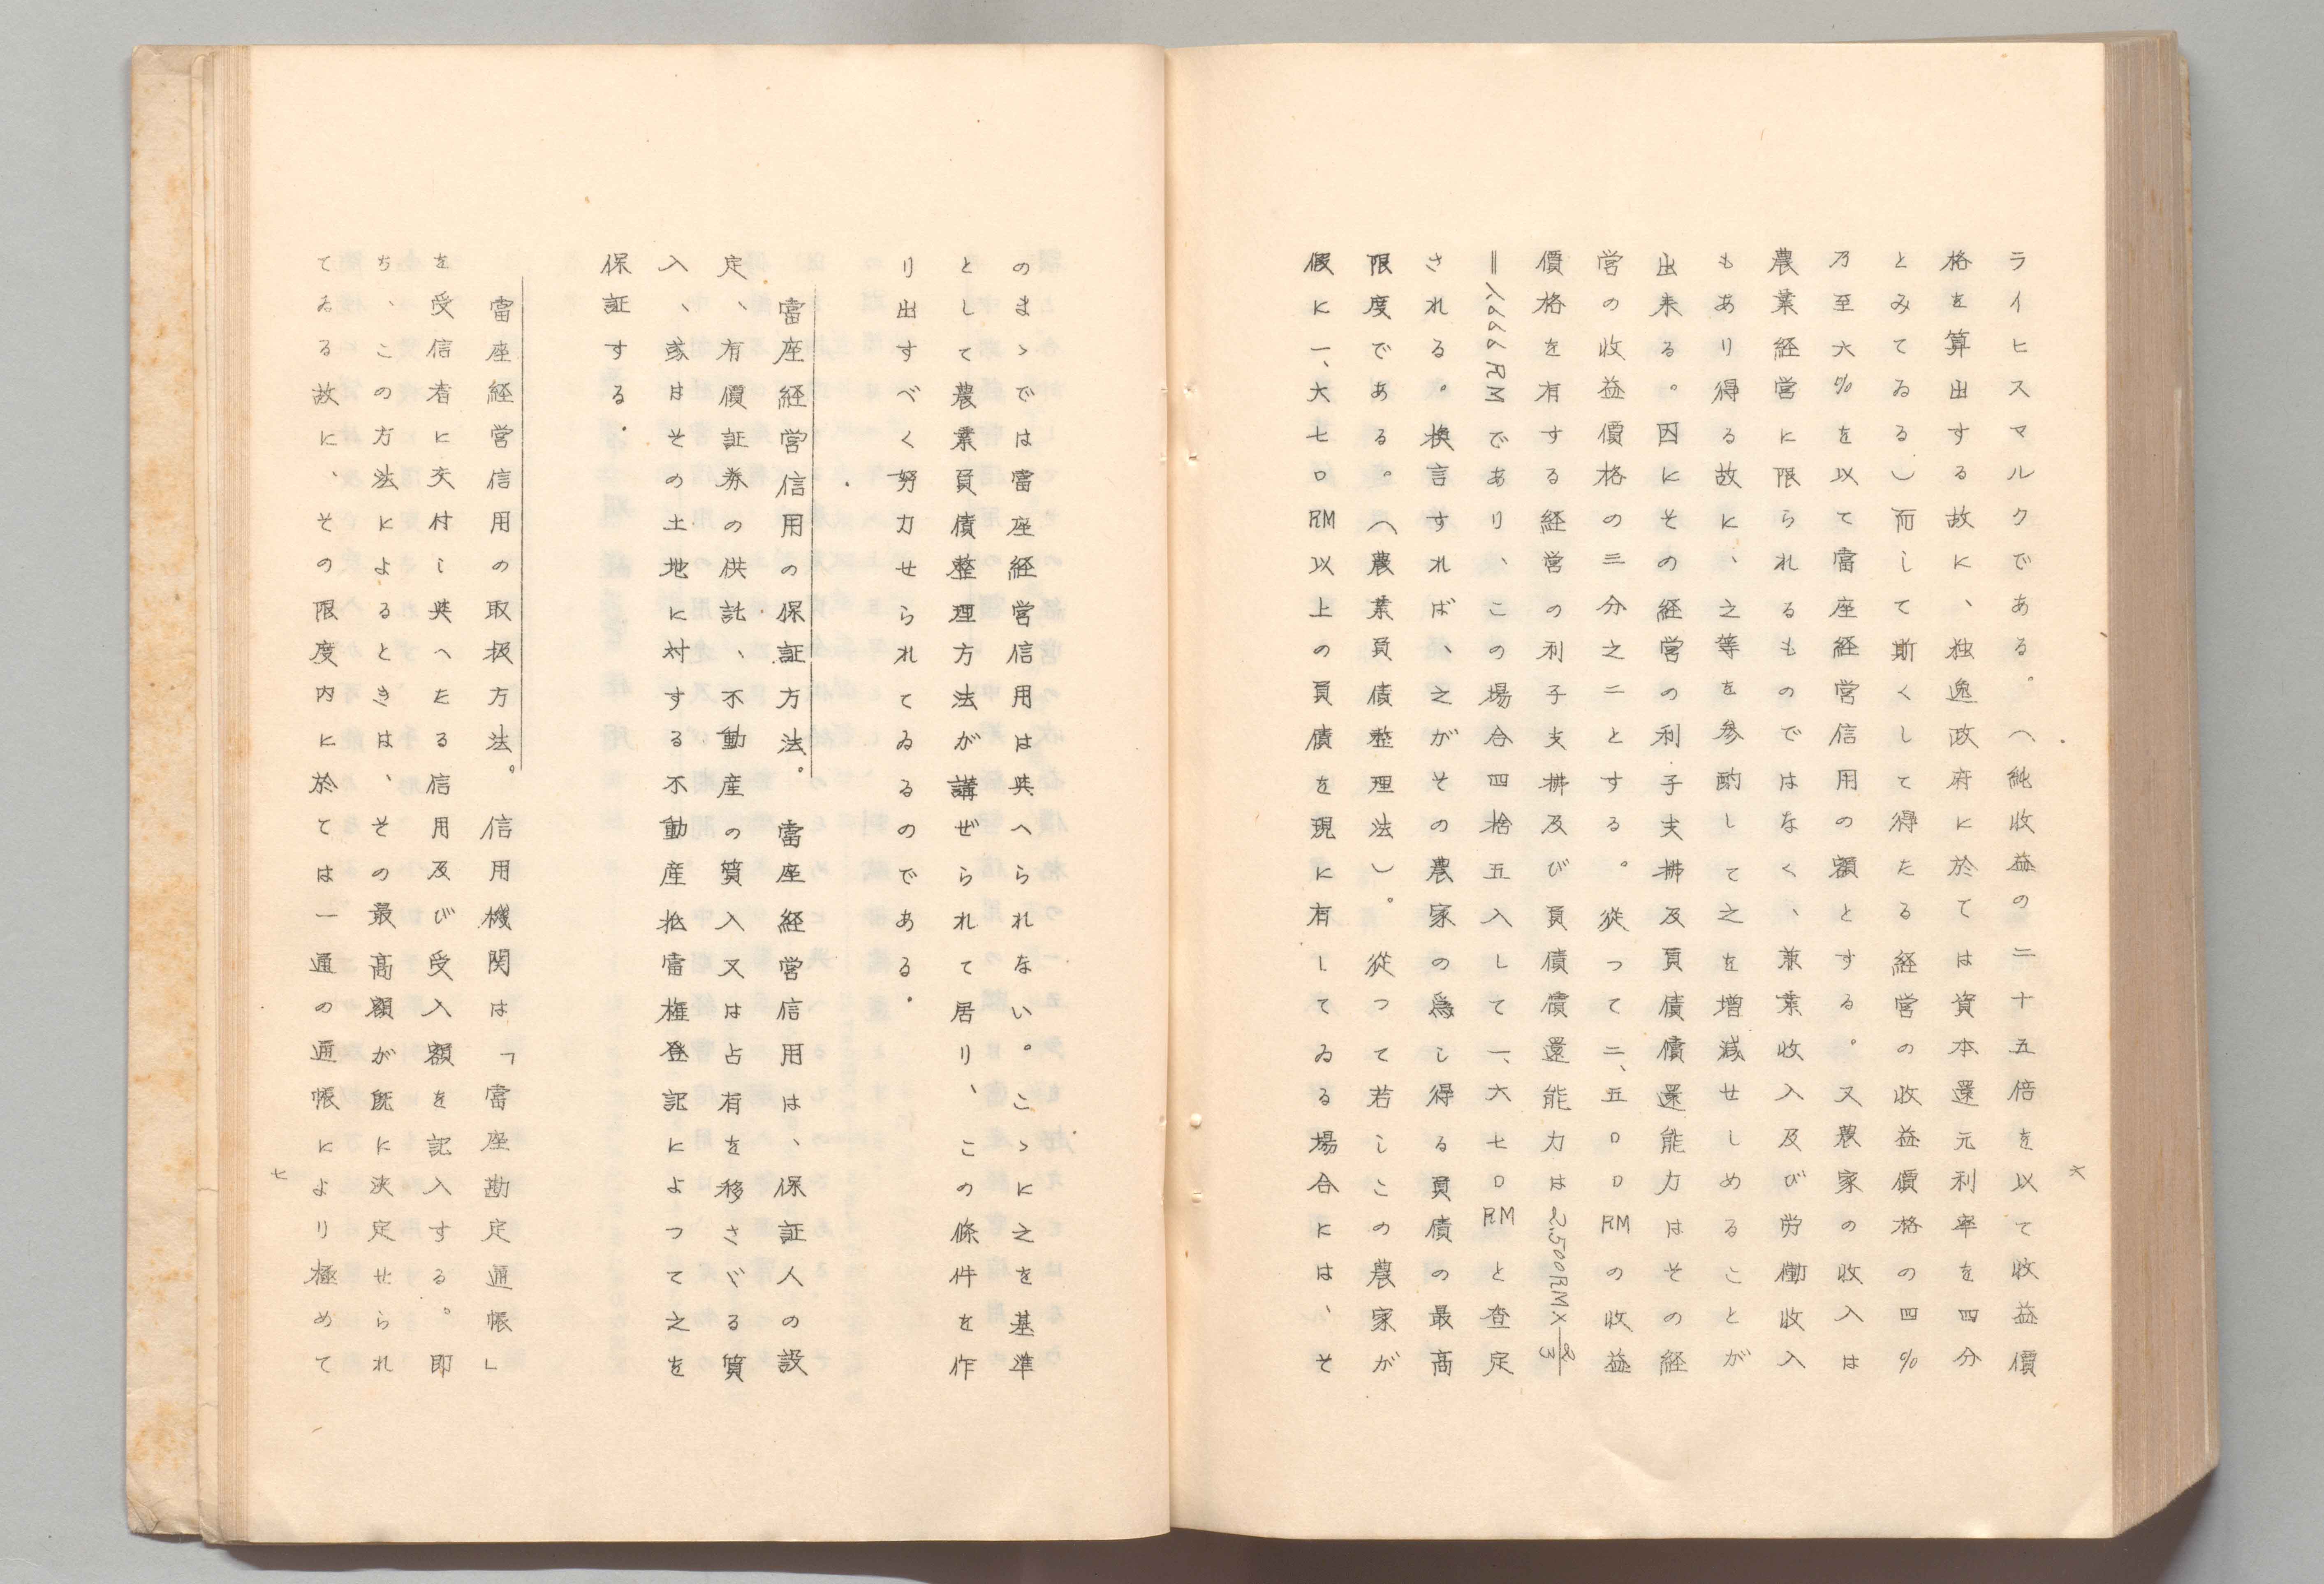 六
ライヒスマルクである。（純收益の二十五倍を以て收益價
格を算出する故に、独逸政府に於ては資本還元利率を四分
とみてゐる）而して斯くして得たる経営の收益價格の四％
乃至六％を以て當座経営信用の額とする。又農家の收入は
農業経営に限られるものではなく、兼業收入及び労働收入
もあり得る故に、之等を参酌して之を増減せしめることが
出来る。因にその経営の利子支拂及負債償還能力はその経
営の收益價格の三分之二とする。従つて二、五〇〇RMの收益
價格を有する経営の利子支拂及び負債償還能力は2.500RM×2/3
＝1.666RMであり、この場合四捨五入して一、六七〇RMと査定
される。換言すれば、之がその農家の爲し得る負債の最高
限度である。（農業負債整理法）。従つて若しこの農家が
假に一、六七〇RM以上の負債を現に有してゐる場合には、そ
のまゝでは當座経営信用は與へられない。こゝに之を基準
として農業負債整理方法が講ぜられて居り、この條件を作
り出すべく努力せられてゐるのである。
當座経営信用の保証方法。當座経営信用は、保証人の設
定、有價証券の供託、不動産の質入又は占有を移さゞる質
入、或はその土地に対する不動産抵當権登記によつて之を
保証する。
當座経営信用の取扱方法。信用機関は「當座勘定通帳」
を受信者に交付し與へたる信用及び受入額を記入する。即
ち、この方法によるときは、その最高額が既に決定せられ
てゐる故に、その限度内に於ては一通の通帳により極めて
七